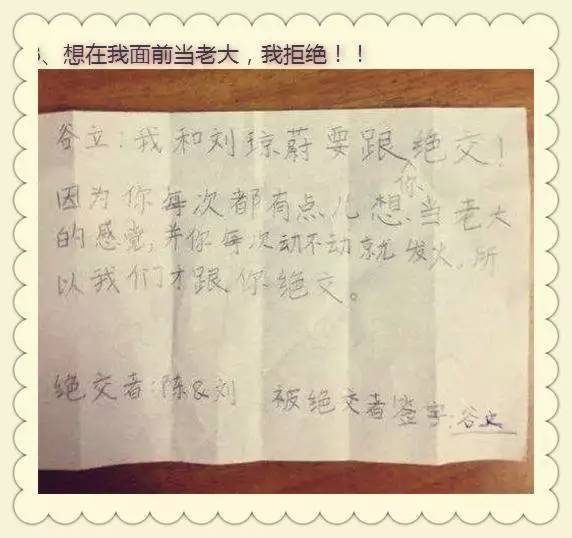 3、想在我面前当老大，我拒绝！！
谷立：我和刘琼蔚要跟你绝交！
因为你每次都有点儿想当老大
的感觉，并你每次动不动就发火。所
以我们才跟你绝交。
绝交者：陈&刘 被绝交者签字：谷立